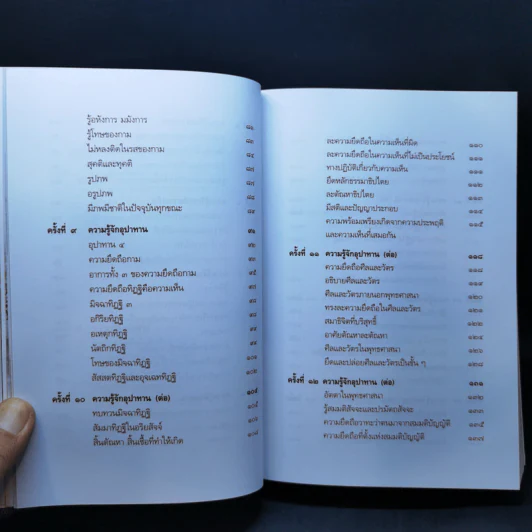 รู้อหังการ มมังการ ๘๑
รู้โทษของกาม
ไม่หลงติดในรสของกาม ๘๔
สุคติและทุคติ
รูปภพ
อรูปภพ
มีภพมีชาติในปัจจุบันทุกขณะ
ครั้งที่ ๙ ความรู้จักอุปาทาน ๙๑
อุปาทาน ๔
ความยึดถือกาม
อาการทั้ง ๓ ของความยึดถือกาม ๙๕
ความยึดถือทิฏฐิคือความเห็น
มิจฉาทิฏฐิ ๓ ๙๘
อกิริยทิฏฐิ
อเหตุกทิฏฐิ
นัตถิกทิฏฐิ
โทษของมิจฉาทิฏฐิ
สัสสตทิฏฐิและอุจเฉททิฏฐิ
ครั้งที่ ๑๐ ความรู้จักอุปาทาน (ต่อ) ๑๐๔
ทบทวนมิจฉาทิฏฐิ ๑๐๕
สัมมาทิฏฐิในอริยสัจจ์
สิ้นตัณหา สิ้นเชื้อที่ทำให้เกิด
ละความยึดถือในความเห็นที่ผิด ๑๑๐
ละความยึดถือในความเห็นที่ไม่เป็นประโยชน์
ทางปฏิบัติเกี่ยวกับความเห็น
ยึดหลักธรรมาธิปไตย ๑๑๒
ละตัณหาธิปไตย
มีสติและปัญญาประกอบ
ความพร้อมเพรียงเกิดจากความประพฤติ ๑๑๕
และความเห็นที่เสมอกัน
ครั้งที่ ๑๑ ความรู้จักอุปาทาน (ต่อ) ๑๑๘
ความยึดถือศีลและวัตร
อธิบายศีลและวัตร
ศีลและวัตรภายนอกพุทธศาสนา
ทรงละความยึดถือในศีลและวัตร
สมาธิจิตที่บริสุทธิ์
อาศัยตัณหาละตัณหา
ศีลและวัตรในพุทธศาสนา
ยึดและปล่อยศีลและวัตรเป็นชั้น ๆ ๑๒๘
ครั้งที่ ๑๒ ความรู้จักอุปาทาน (ต่อ) ๑๓๑
อัตตาในพุทธศาสนา
รู้สมมติสัจจะและปรมัตถสัจจะ ๑๓๓
ความยึดถือวาทะว่าตนมาจากสมมติบัญญัติ ๑๓๕
ความยึดถือที่ตั้งแห่งสมมติบัญญัติ ๑๓๗